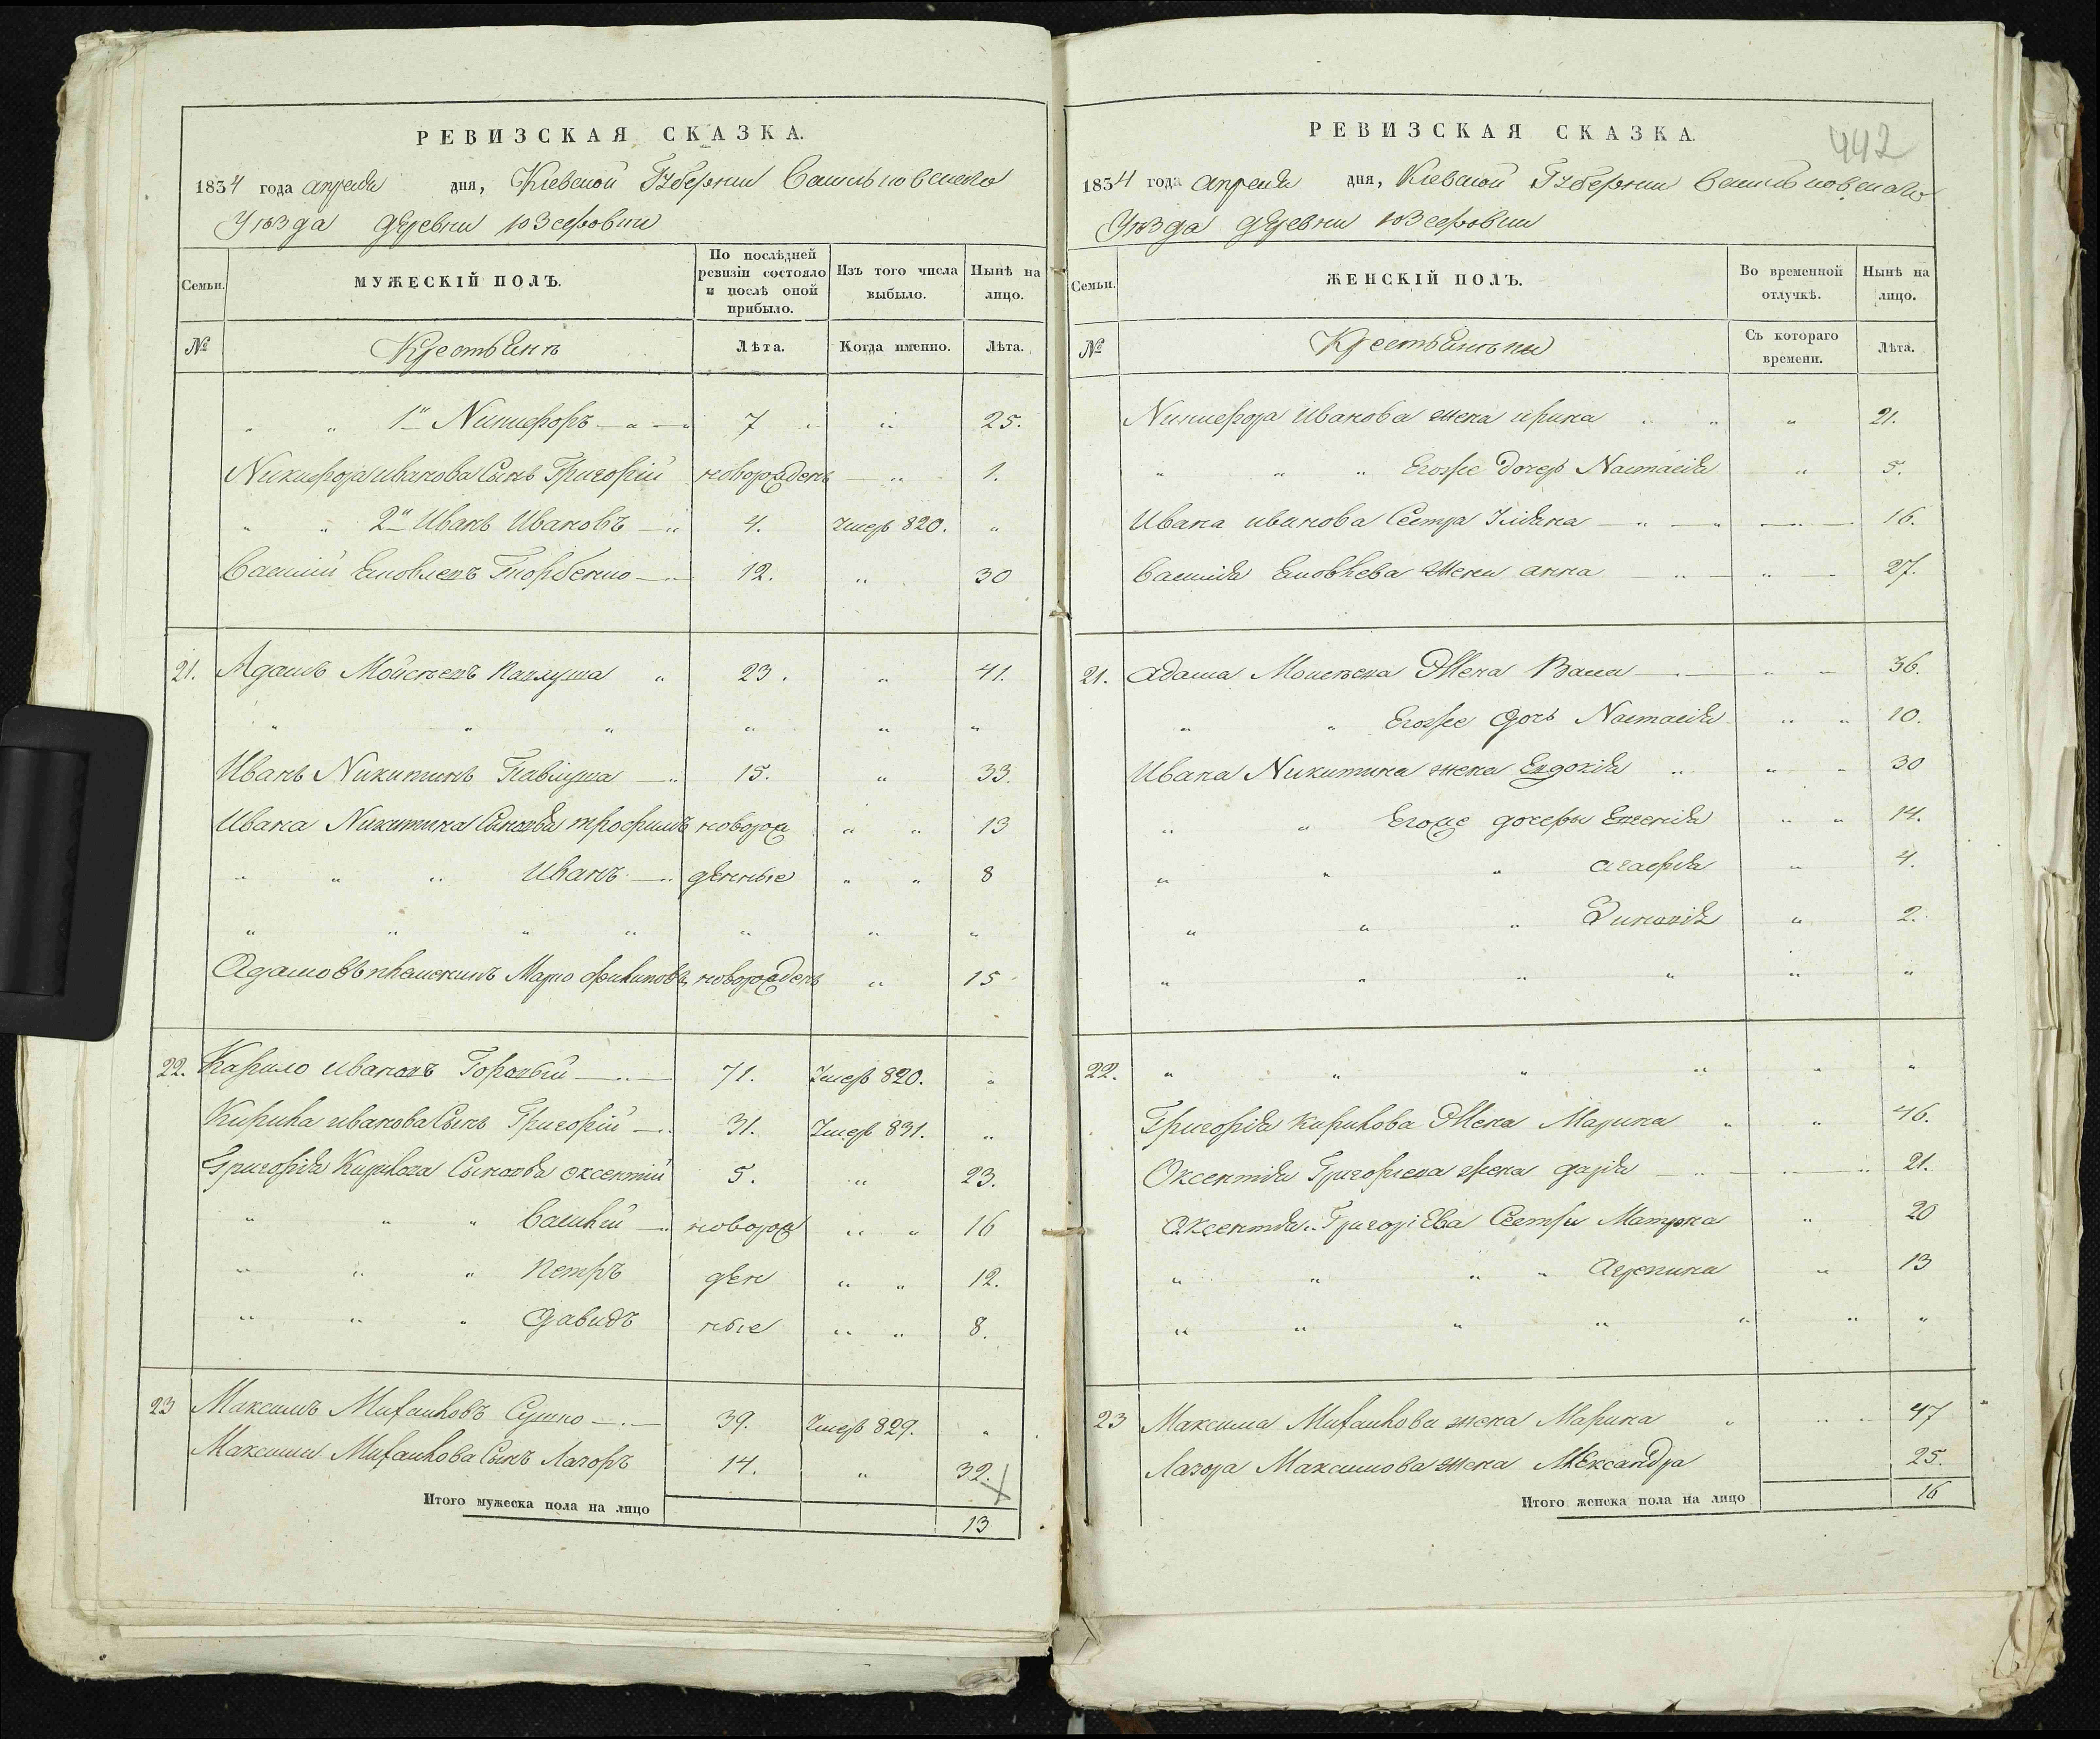 РЕВИЗСКАЯ СКАЗКА.
1834 года апреля дня, Киевской Губернии Васильковского
Уезда деревни Юзефовки
Семьи. МУЖЕСКІЙ ПОЛЪ. По послѣдней ревизіи состояло и послѣ оной прибыло. Изъ того числа выбыло. Нынѣ на лицо.
№ Крестьянъ Лѣта. Когда именно. Лѣта.
" " 1й Никифоръ 7 " 25.
Никифора Иванова Сынъ Григорій новорожденъ " 1.
" " 2й Иванъ Ивановъ " 4. Умеръ 820. "
Василий Яковлевъ 12. " 30
21. Адамъ Мойсѣевъ Павлуша " 23. " 41.
" " " " " "
Иванъ Никитинъ Павлуша " 15. " 33.
Ивана Никитина Сыновья трофимъ новорож " " 13
" " " Иванъ денные " " 8
" " " " " " "
Адамовъ племеникъ Марко Филиповъ новорожденъ " 15
22. Кирило Ивановъ 71. Умеръ 820. "
Кирила Иванова Сынъ Григорій 31. Умеръ 831. "
Григорія Кирилова Сыновья Оксентий 5. " 23.
" " " Василий новорож " " 16
" " " Петръ ден " " 12.
" " " Давидъ ные " " 8.
23 Максимъ Михайловъ 39. Умеръ 829. "
Максима Михайлова Сынъ Лазоръ 14. " 32.
Итого мужеска пола на лицо 13
442
РЕВИЗСКАЯ СКАЗКА.
1834 года апреля дня, Киевской Губернии Васильковскаго
Уезда деревни Юзефовки
Семьи. ЖЕНСКІЙ ПОЛЪ. Во временной отлучкѣ. Нынѣ на лицо.
№ Крестьянъки Съ котораго времени. Лѣта.
Никифора Иванова жена ирина " " " 21.
" " " Егоже дочеръ Настасия " 5.
Ивана иванова Сестра Улияна " " " 16.
Василия Яковлева Жена анна " " 27.
21. адама Моисѣева Жена " " 36.
" " Егоже дочь Настасия " " 10.
Ивана Никитина жена Евдокия " " " 30
" " Егоже дочеры " " 14.
" " " агафия " 4.
" " " " 2.
" " " " " "
22. " " " " " "
Григорія Кирилова Жена Марина " " 46.
Оксентия Григориева жена дария " " " 21.
Оксентия Григориева Сестры Матрона " 20
" " " " Агрепина " 13
" " " " " " "
23 Максима Михайлова жена Марина " " " 47
Лазора Максимова жена Александра 25.
Итого женска пола на лицо 16